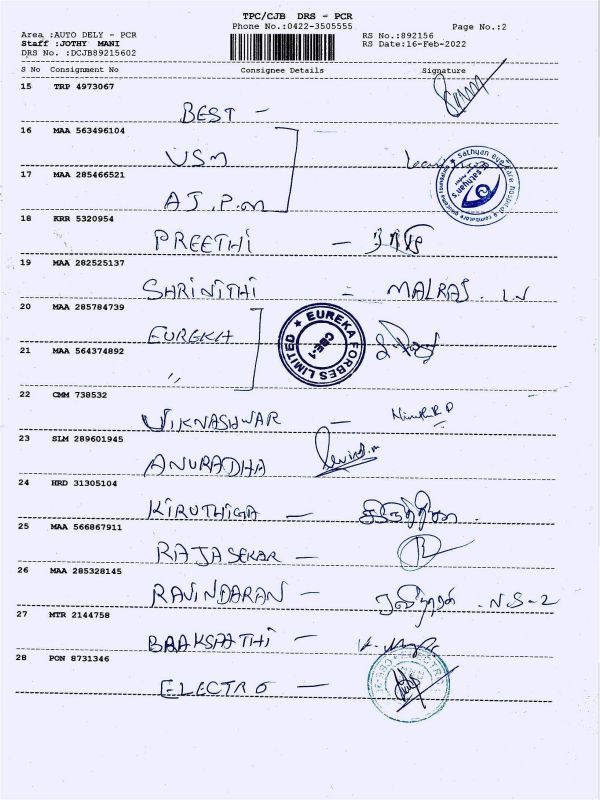 TPC/CJB DRS - PCR
Phone No.:0422-3505555 Page No.:2
Area :AUTO DELY - PCR RS No.:892156
Staff :JOTHY MANI RS Date:16-Feb-2022
DRS No. :DCJB89215602
S No Consignment No Consignee Details Signature
15 TRP 4973067
BEST -
16 MAA 563496104
VSM
17 MAA 285466521
AJ.P.m
18 KRR 5320954
PREETHI -
19 MAA 282525137
SHRINITHI - MALRAJ . L.N
20 MAA 285784739
EUREKA
EUREKA FORBES LIMITED CBE-1
21 MAA 564374892
"
22 CMM 738532
VIKNASHWAR -
23 SLM 289601945
ANURADHA
24 HRD 31305104
KIRUTHIGA - கிருத்திகா
25 MAA 566867911
RAJASEKAR -
26 MAA 285328145
RAVINDARAN - .N.S-2
27 MTR 2144758
BAAKSPATHI -
28 PON 8731346
ELECTRO -